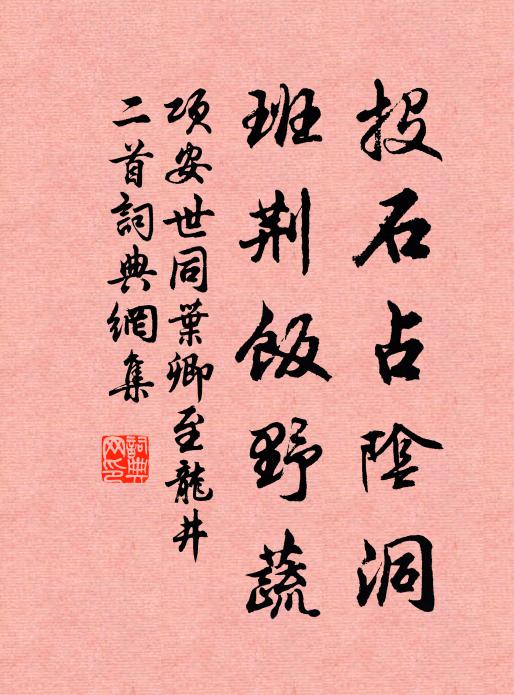 投石占陰洞
班荆飯野蔬
項安世同葉卿至龍井
二首詞典網集
詞典網印